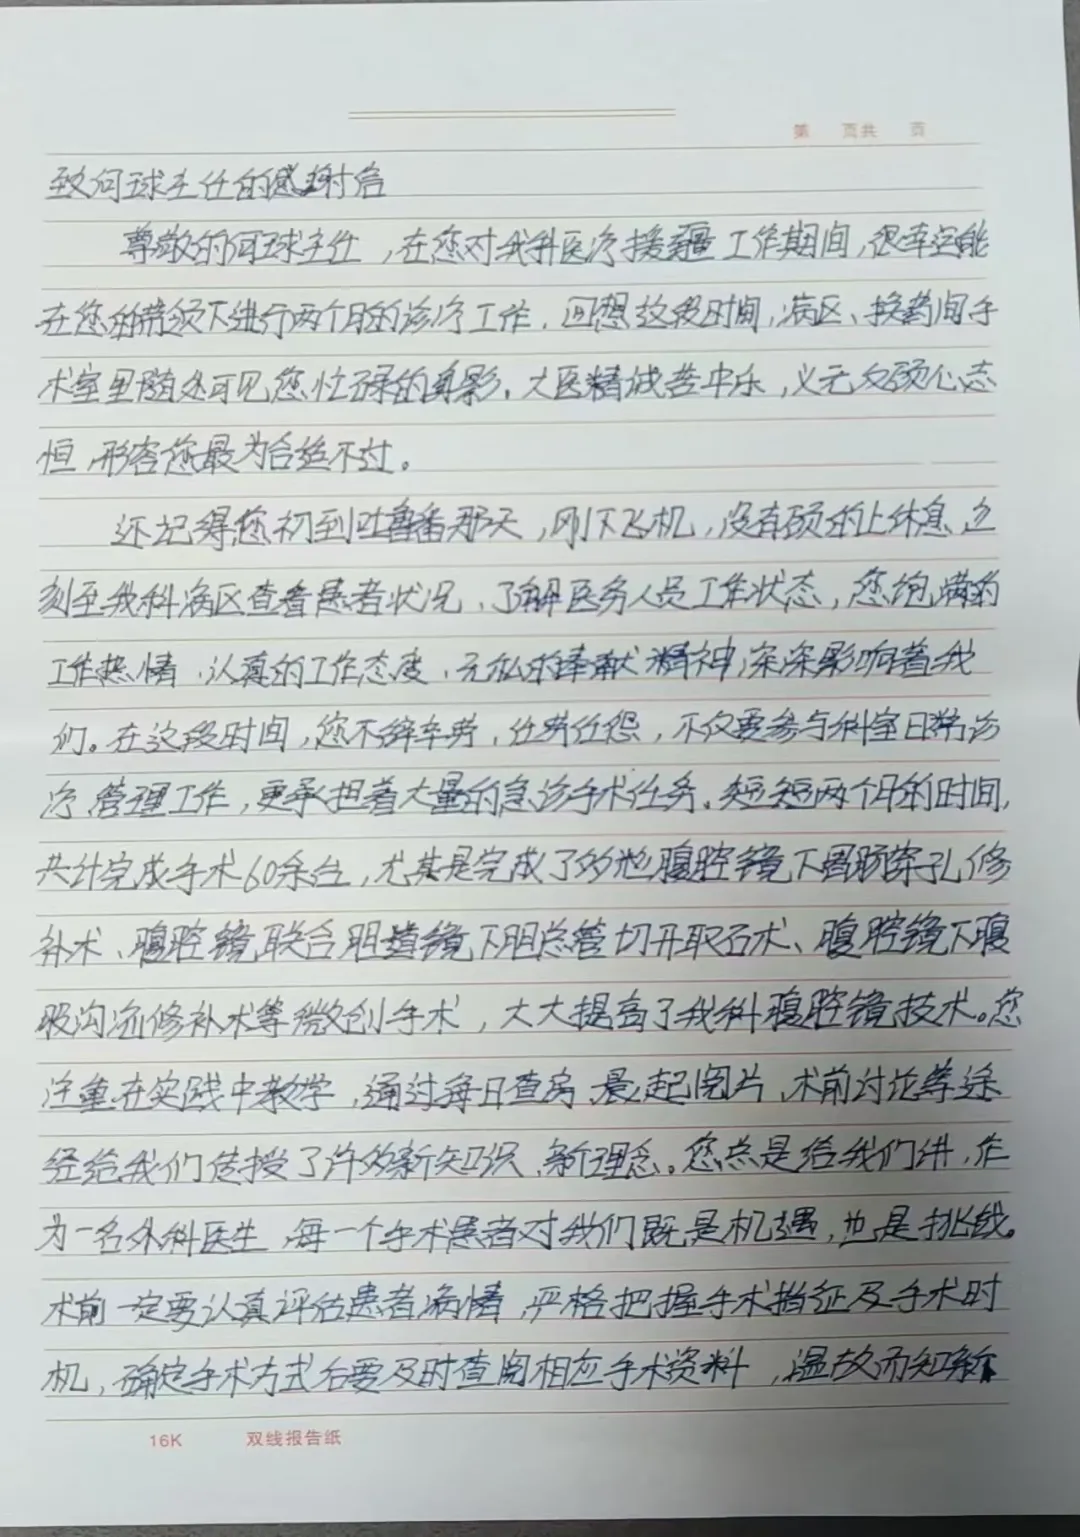 第 页共 页
致何球主任的感谢信
尊敬的何球主任,在您对我科医疗援疆工作期间,很幸运能
在您的带领下进行两个月的诊疗工作,回想这段时间,病区、换药间手
术室里随处可见您忙碌的身影。大医精诚苦中乐,义无反顾心态
恒,形容您最为合适不过。
还记得您初到吐鲁番那天,刚下飞机,没有顾的上休息,立
刻至我科病区查看患者状况、了解医务人员工作状态,您饱满的
工作热情、认真的工作态度、无私的奉献精神,深深影响着我
们。在这段时间,您不辞车劳,任劳任怨,不仅要参与科室日常诊
疗、管理工作,更承担着大量的急诊手术任务。短短两个月的时间,
共计完成手术60余台,尤其是完成了多例腹腔镜下胃肠穿孔修
补术、腹腔镜联合胆道镜下胆总管切开取石术、腹腔镜下腹
股沟疝修补术等微创手术,大大提高了我科腹腔镜技术。您
注重在实践中教学,通过每日查房、晨起阅片、术前讨论等途
径给我们传授了许多新知识、新理念。您总是给我们讲,作
为一名外科医生,每一个手术患者对我们既是机遇,也是挑战。
术前一定要认真评估患者病情,严格把握手术指征及手术时
机,确定手术方式后要及时查阅相应手术资料,温故而知新
16K 双线报告纸